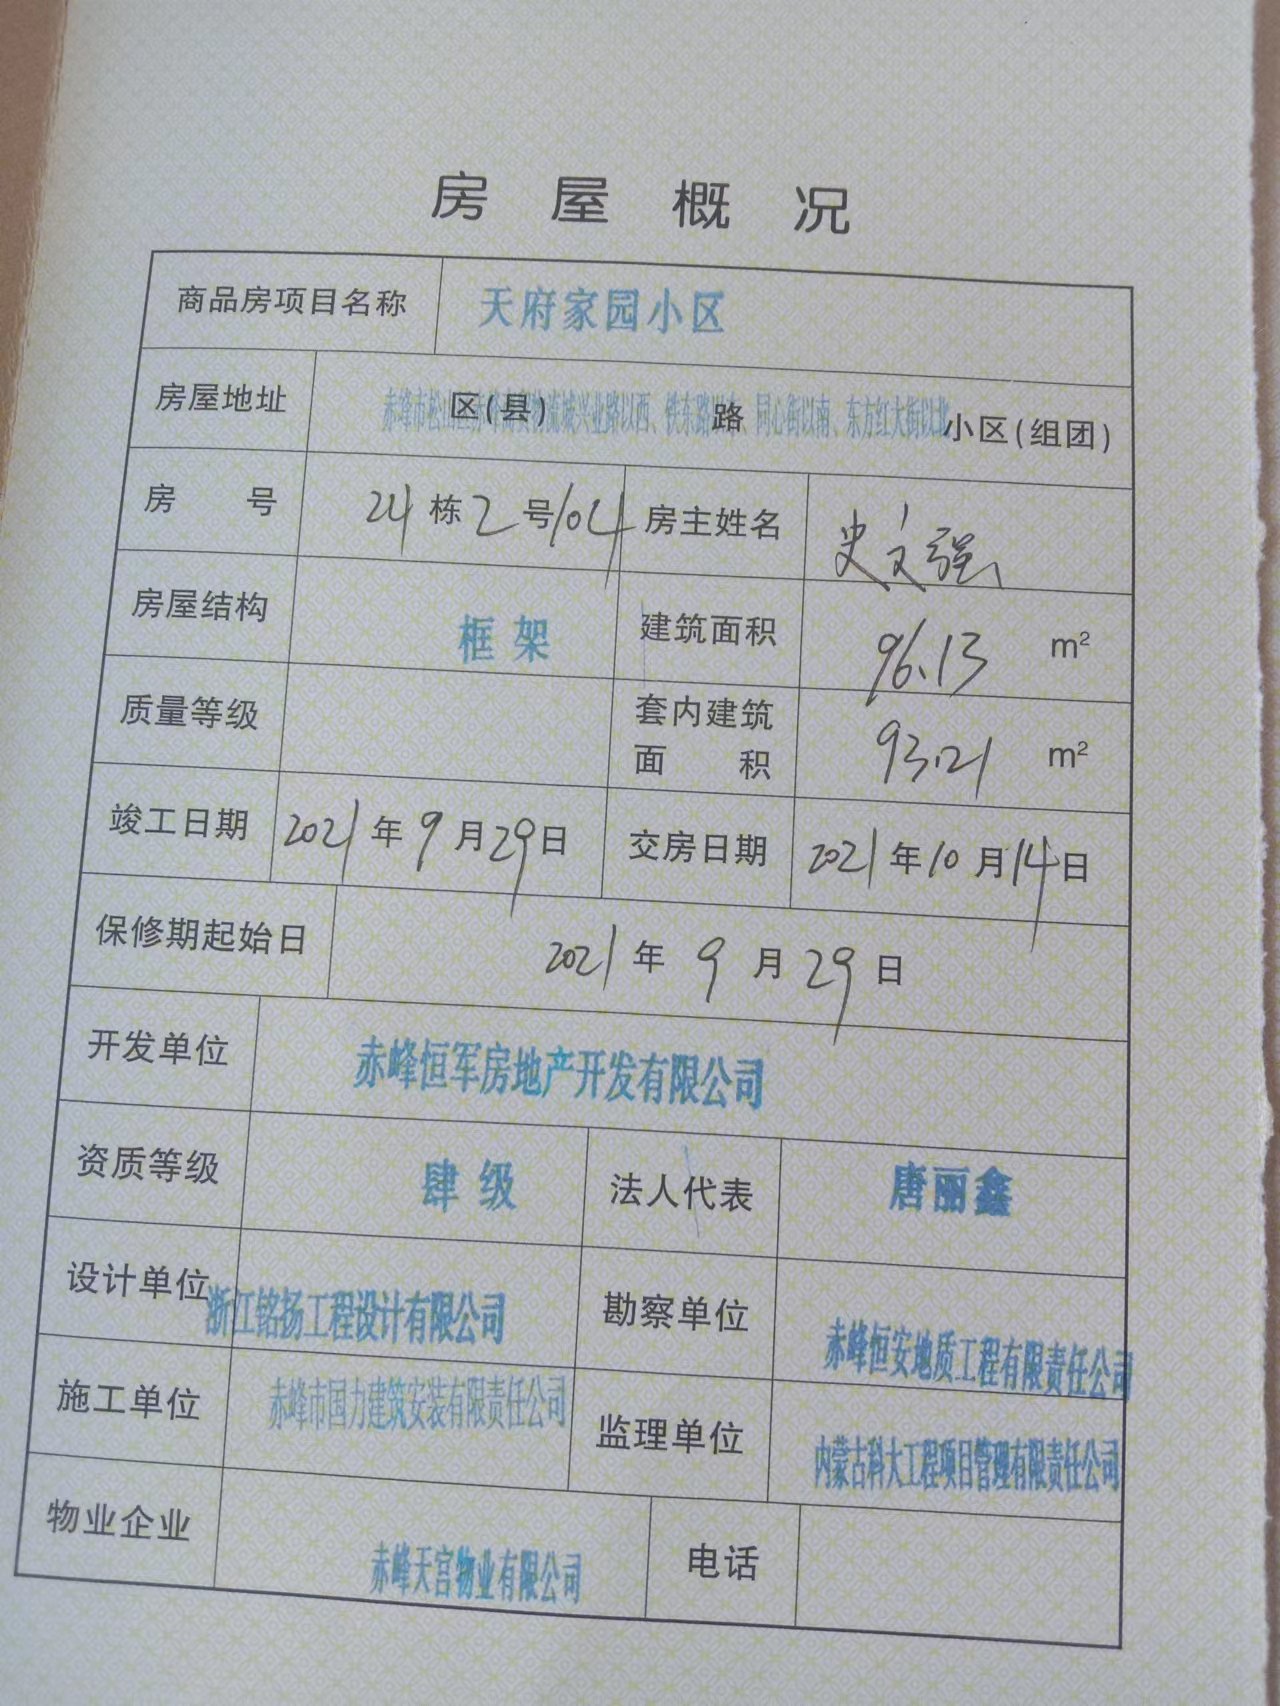 房屋概况
商品房项目名称 天府家园小区
房屋地址 赤峰市松山区 物流城兴业路以西、铁东路以 、同心街以南、东方红大街以北 区(县) 路 小区(组团)
房号 24栋2号104 房主姓名 史文强
房屋结构 框架 建筑面积 96.13 m²
质量等级 套内建筑面积 93.21 m²
竣工日期 2021年9月29日 交房日期 2021年10月14日
保修期起始日 2021年9月29日
开发单位 赤峰恒军房地产开发有限公司
资质等级 肆级 法人代表 唐丽鑫
设计单位 浙江铭扬工程设计有限公司 勘察单位 赤峰恒安地质工程有限责任公司
施工单位 赤峰市国力建筑安装有限责任公司 监理单位 内蒙古科大工程项目管理有限责任公司
物业企业 赤峰天宫物业有限公司 电话